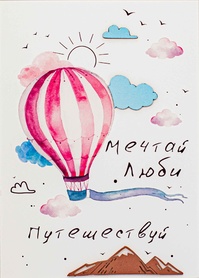 Мечтай
Люби
Путешествуй